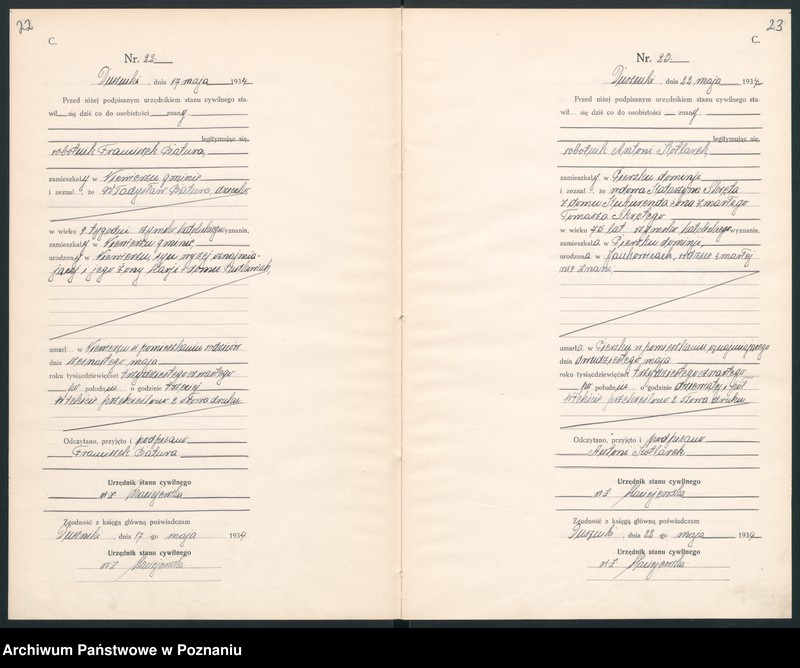 22
C.
Nr. 22.
Duszniki, dnia 17 maja 1934
Przed niżej podpisanym urzędnikiem stanu cywilnego sta-
wił się dziś co do osobistości znany,
legitymując się
robotnik Franciszek Batura,
zamieszkały w Niewierzu gminie
i zeznał, że Władysław Batura, dziecko
w wieku 2 tygodni rzymsko katolickiego wyznania,
zamieszkały w Niewierzu gminie,
urodzony w Niewierzu, syn wyżej oznajmia-
jącej i jego żony Marji z domu
umarł w Niewierzu w pomieszkaniu rodziców
dnia szesnastego maja
roku tysiącdziewięćset trzydziestego czwartego
po południu o godzinie trzeciej
W tekście przekreślono 2 słowa druku
Odczytano, przyjęto i podpisano
Franciszek Batura
Urzędnik stanu cywilnego
w z. Maciejewska
Zgodność z księgą główną poświadczam
Duszniki, dnia 17 go maja 1934
Urzędnik stanu cywilnego
w z. Maciejewska
23
C.
Nr. 23.
Duszniki, dnia 22 maja 1934
Przed niżej podpisanym urzędnikiem stanu cywilnego sta-
wił się dziś co do osobistości znany,
legitymując się
robotnik Antoni Kotlarek,
zamieszkały w Pierska dominje
i zeznał, że wdowa Katarzyna Skręta
z domu Kukurenda żona zmarłego
Tomasza Skrętego
w wieku 75 lat rzymsko katolickiego wyznania,
zamieszkała w Piersku dominje,
urodzona w Jankowicach, rodzice zmarłej
nie znani,
umarła w Piersku w pomieszkaniu oznajmiającego
dnia dwudziestego maja
roku tysiącdziewięćset trzydziestego czwartego
po południu o godzinie dziewiątej i pół
W tekście przekreślono 2 słowa druku
Odczytano, przyjęto i podpisano
Antoni Kotlarek
Urzędnik stanu cywilnego
w z. Maciejewska
Zgodność z księgą główną poświadczam
Duszniki, dnia 22 go maja 1934
Urzędnik stanu cywilnego
w z. Maciejewska
Archiwum Państwowe w Poznaniu